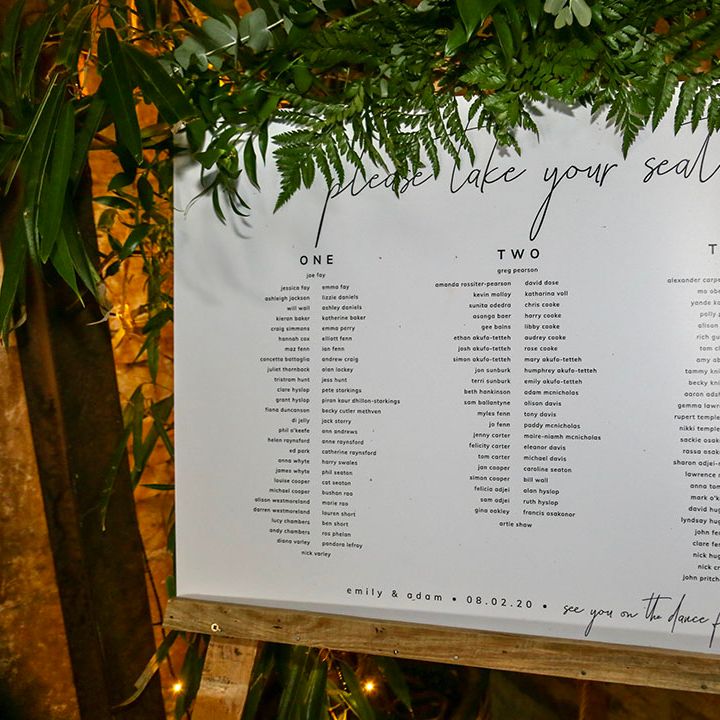 please take your seat
ONE
joe fay
jessica fay emma fay
ashleigh jackson lizzie daniels
will wall ashley daniels
kieran baker katherine baker
craig simmons emma perry
hannah cox elliott fenn
maz fenn ian fenn
concetta battaglia andrew craig
juliet thornback alan lockey
tristram hunt jess hunt
clare hyslop pete starkings
grant hyslop piran kaur dhillon-starkings
fiona duncanson becky cutler methven
di jelly jack storry
phil o'keefe ann andrews
helen raynsford anne raynsford
ed park catherine raynsford
anna whyte harry swales
james whyte phil seaton
louise cooper cat seaton
michael cooper bushan rao
alison westmoreland marie rao
darren westmoreland lauren short
lucy chambers ben short
andy chambers ros phelan
diana varley pandora lefroy
nick varley
TWO
greg pearson
amanda rossiter-pearson david dose
kevin molloy katharina voll
sunita odedra chris cooke
asanga baer harry cooke
gee bains libby cooke
ethan akufo-tetteh audrey cooke
josh akufo-tetteh rose cooke
simon akufo-tetteh mary akufo-tetteh
jon sunburk humphrey akufo-tetteh
terri sunburk emily akufo-tetteh
beth hankinson adam mcnicholas
sam ballantyne alison davis
myles fenn tony davis
jo fenn paddy mcnicholas
jenny carter maire-niamh mcnicholas
felicity carter eleanor davis
tom carter michael davis
jan cooper caroline seaton
simon cooper bill wall
felicia adjei alan hyslop
sam adjei ruth hyslop
gina oakley francis asakonor
artie shaw
T
alexander carpe
mo obe
yande ka
polly
alison
rich gu
tom cl
amy ab
tammy kni
becky kni
aaron adsh
gemma lawr
rupert temple
nikki temple
sackie asako
rassa asako
sharon adjei-
lawrence
anna tom
mark o'k
david hug
lyndsay hug
john fe
clare fe
nick hug
nick cr
john pritch
emily & adam • 08.02.20 • see you on the dance f